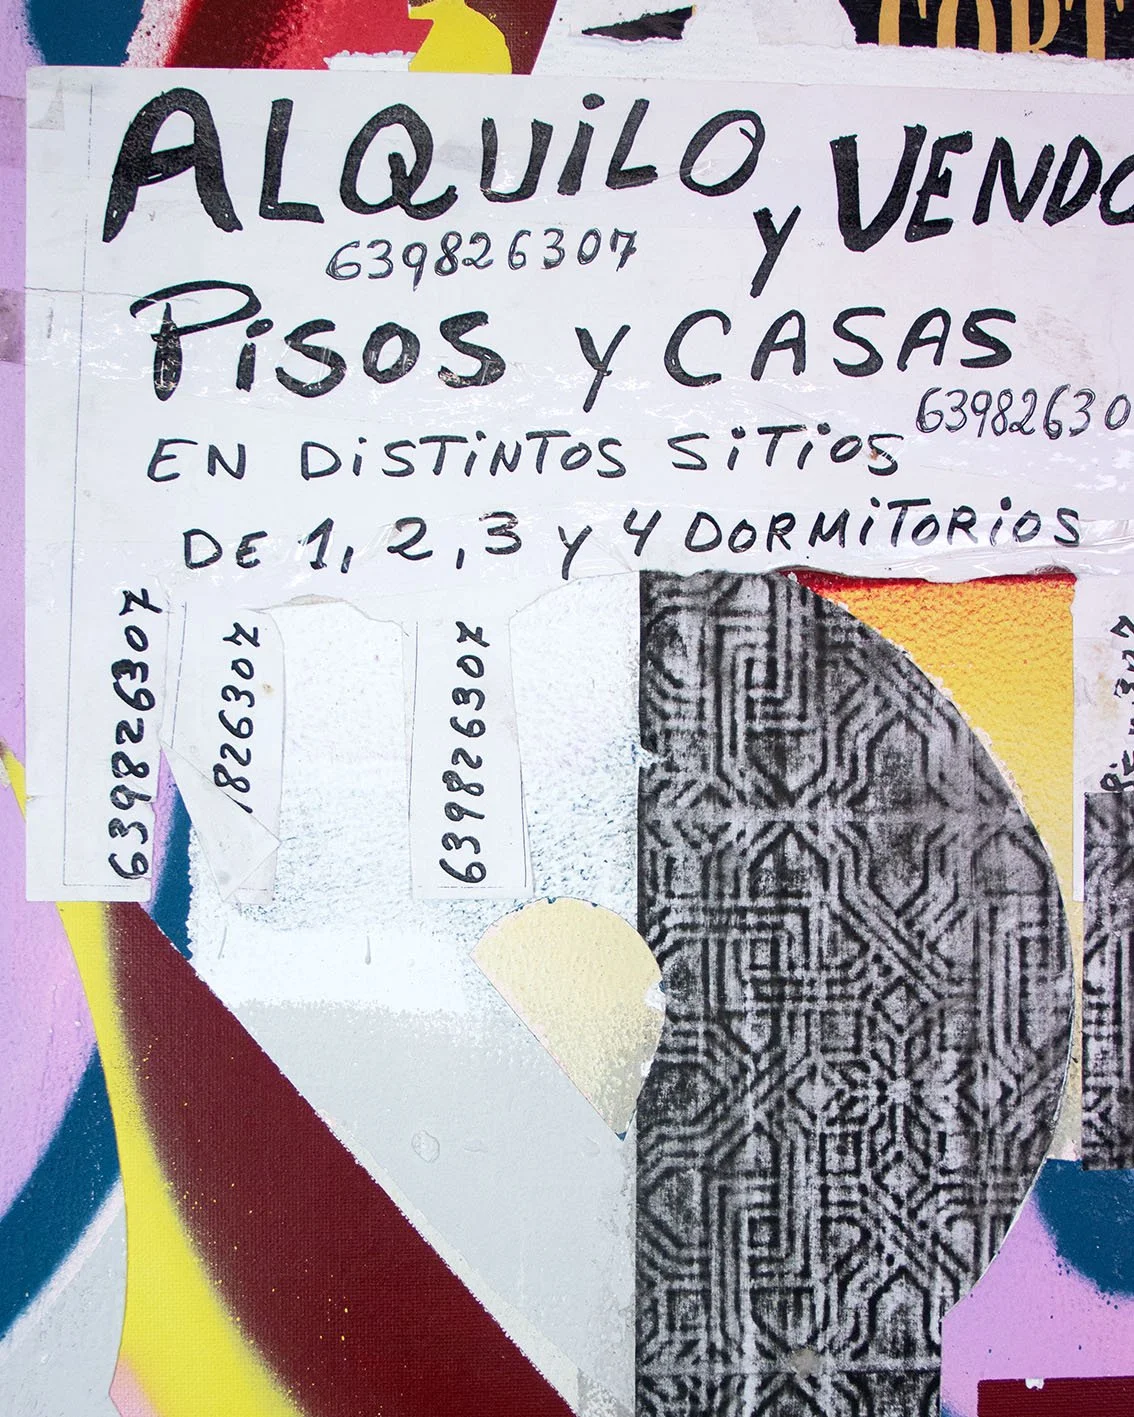 CORT
ALQUiLO y VENDO
639826307
PiSOS y CASAS
63982630
EN DiSTiNTOS SiTiOS
DE 1, 2, 3 y 4 DORMiTORiOS
639826307
826307
639826307